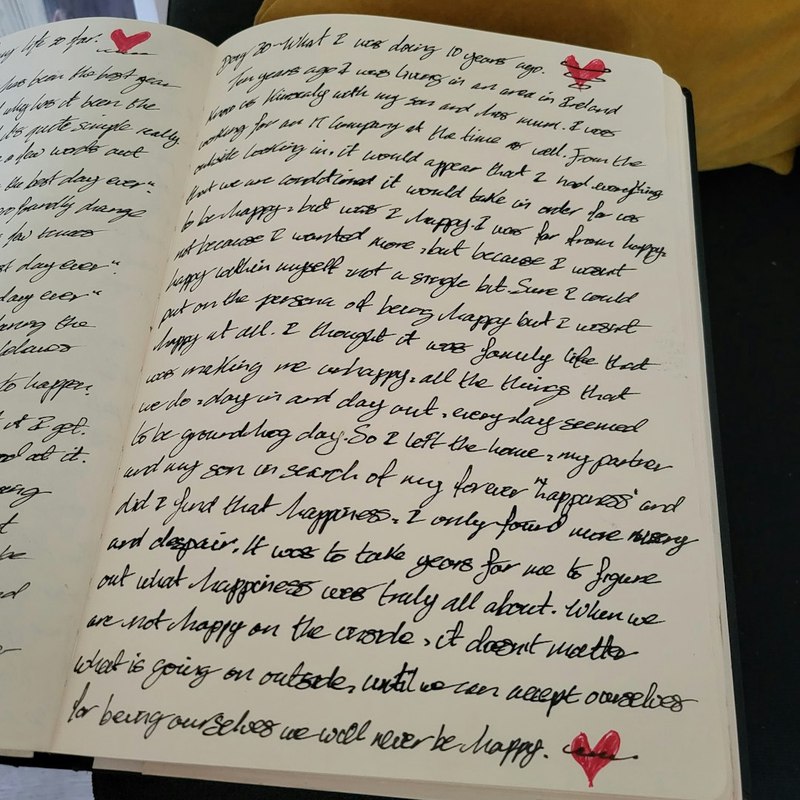 my life so far.
has been the best year
why has it been the
its quite simple really
a few words out
the best day ever"
friendly change
few times
day ever"
day ever"
during the
to happen.
it I get.
at it.
be
Day 30 - What I was doing 10 years ago.
Ten years ago I was living in an area in Ireland
know as Kinsealy with my son and his mum. I was
working for an IT company at the time as well. From the
outside looking in, it would appear that I had everything
that we are conditioned it would take in order for us
to be happy, but was I happy. I was far from happy.
not because I wanted more, but because I wasnt
happy within myself not a single bit. Sure I could
put on the persona of being happy but I wasnt
happy at all. I thought it was family life that
was making me unhappy, all the things that
we do, day in and day out, every day seemed
to be groundhog day. So I left the home, my partner
and my son in search of my forever "happiness" and
did I find that happiness. I only found more misery
and despair. It was to take years for me to figure
out what happiness was truly all about. When we
are not happy on the inside, it doesnt matter
what is going on outside, until we can accept ourselves
for being ourselves we will never be happy.